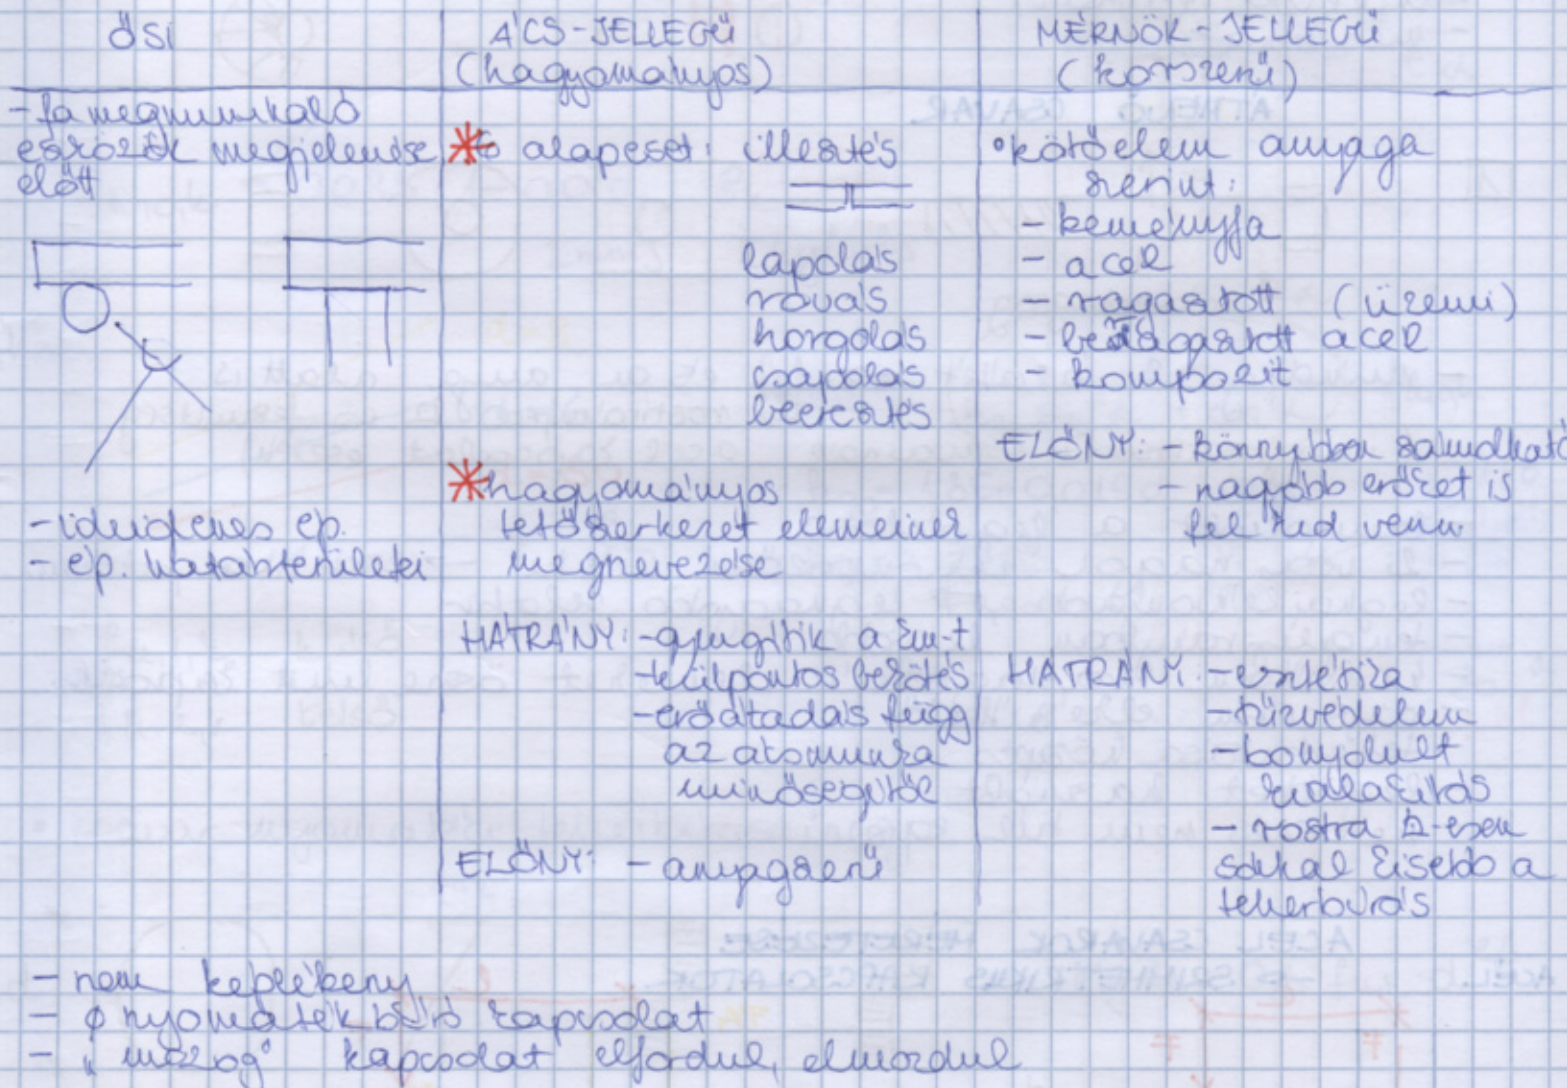 ŐSI
- fa megmunkáló
eszközök megjelenése
előtt
- ideiglenes ép.
- ép. határterületei
ÁCS-JELLEGŰ
(hagyományos)
* 6 alapeset: illesztés
lapolás
rovás
horgolás
csapolás
beeresztés
* hagyományos
tetőszerkezet elemeinek
megnevezése
HÁTRÁNY: - gyengítik a km-t
- külpontos bekötés
- erőátadás függ
az ácsmunka
minőségétől
ELŐNY: - anyagszerű
MÉRNÖK-JELLEGŰ
(korszerű)
• kötőelem anyaga
szerint:
- keményfa
- acél
- ragasztott (üzemi)
- beragasztott acél
- kompozit
ELŐNY: - könnyebben számolható
- nagyobb erőket is
fel tud venni
HÁTRÁNY: - esztétika
- tűzvédelem
- bonyolult
kialakítás
- rostra ⊥-esen
sokkal kisebb a
teherbírás
- nem képlékeny
- ϕ nyomatékbíró kapcsolat
- "mozog" kapcsolat elfordul, elmozdul